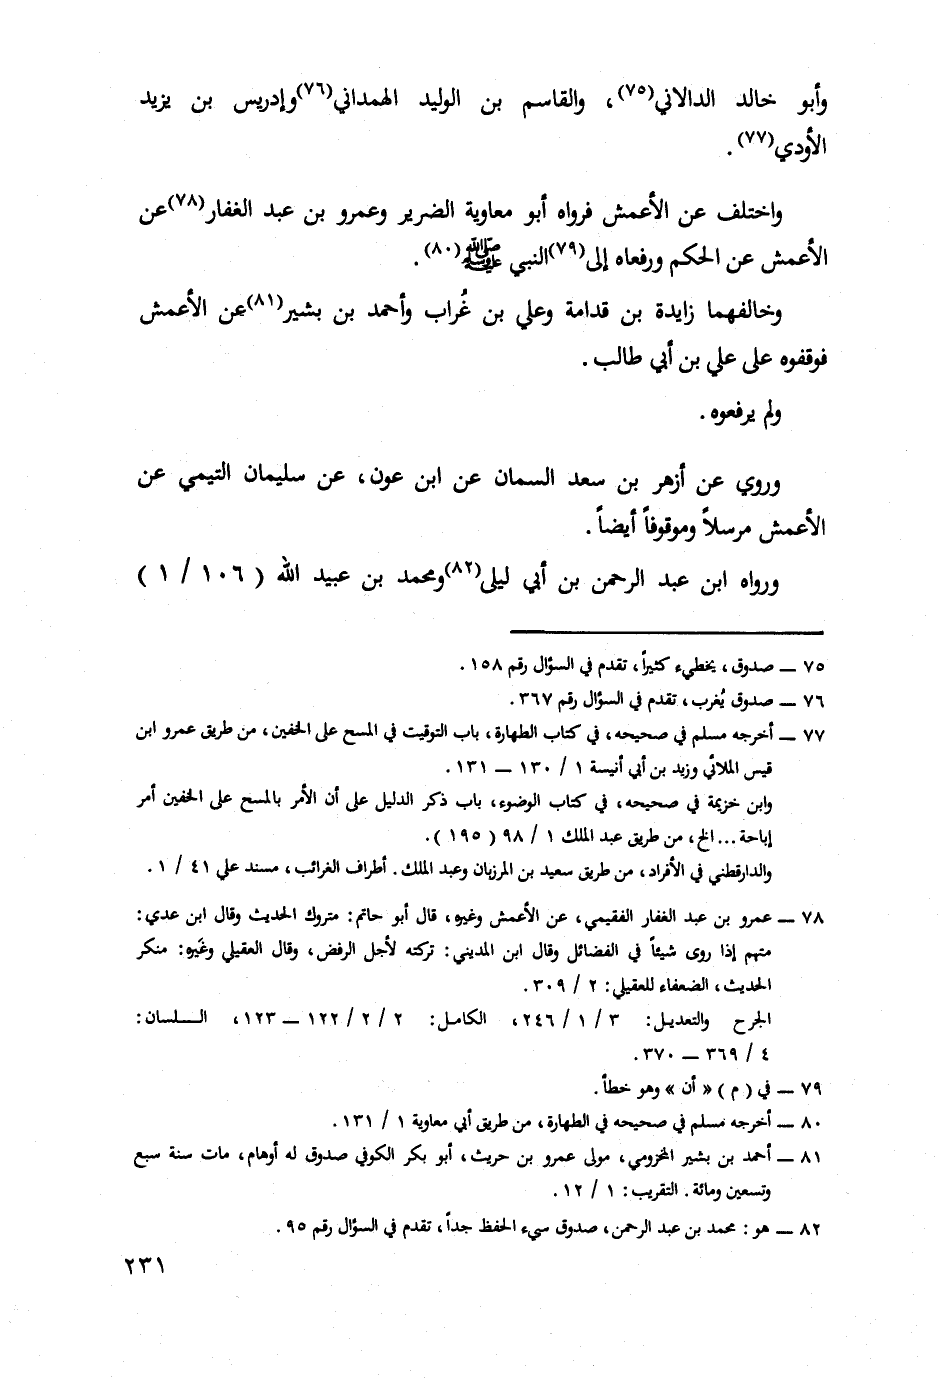 وأبو خالد الدالاني(٧٥)، والقاسم بن الوليد الهمداني(٧٦)وإدريس بن يزيد
الأودي(٧٧).
واختلف عن الأعمش فرواه أبو معاوية الضرير وعمرو بن عبد الغفار(٧٨)عن
الأعمش عن الحكم ورفعاه إلى(٧٩)النبي ﷺ(٨٠).
وخالفهما زايدة بن قدامة وعلي بن غُراب وأحمد بن بشير(٨١)عن الأعمش
فوقفوه على علي بن أبي طالب.
ولم يرفعوه.
وروي عن أزهر بن سعد السمان عن ابن عون، عن سليمان التيمي عن
الأعمش مرسلاً وموقوفاً أيضاً.
ورواه ابن عبد الرحمن بن أبي ليلى(٨٢)ومحمد بن عبيد الله ( ١٠٦ / ١ )
٧٥ ــ صدوق، يخطيء كثيراً، تقدم في السؤال رقم ١٥٨.
٧٦ ــ صدوق يُغرب، تقدم في السؤال رقم ٣٦٧.
٧٧ ــ أخرجه مسلم في صحيحه، في كتاب الطهارة، باب التوقيت في المسح على الخفين، من طريق عمرو ابن
قيس الملائي وزيد بن أبي أنيسة ١ / ١٣٠ ــ ١٣١.
وابن خزيمة في صحيحه، في كتاب الوضوء، باب ذكر الدليل على أن الأمر بالمسح على الخفين أمر
إباحة... الخ، من طريق عبد الملك ١ / ٩٨ ( ١٩٥ ).
والدارقطني في الأفراد، من طريق سعيد بن المرزبان وعبد الملك. أطراف الغرائب، مسند علي ٤١ / ١.
٧٨ ــ عمرو بن عبد الغفار الفقيمي، عن الأعمش وغيره، قال أبو حاتم: متروك الحديث وقال ابن عدي:
متهم إذا روى شيئاً في الفضائل وقال ابن المديني: تركته لأجل الرفض، وقال العقيلي وغيره: منكر
الحديث، الضعفاء للعقيلي: ٢ / ٣٠٩.
الجرح والتعديل: ٣ / ١ / ٢٤٦، الكامل: ٢ / ٢ / ١٢٢ ــ ١٢٣، اللسان:
٤ / ٣٦٩ ــ ٣٧٠.
٧٩ ــ في ( م ) « أن » وهو خطأ.
٨٠ ــ أخرجه مسلم في صحيحه في الطهارة، من طريق أبي معاوية ١ / ١٣١.
٨١ ــ أحمد بن بشير المخزومي، مولى عمرو بن حريث، أبو بكر الكوفي صدوق له أوهام، مات سنة سبع
وتسعين ومائة. التقريب: ١ / ١٢.
٨٢ ــ هو: محمد بن عبد الرحمن، صدوق سيء الحفظ جداً، تقدم في السؤال رقم ٩٥.
٢٣١